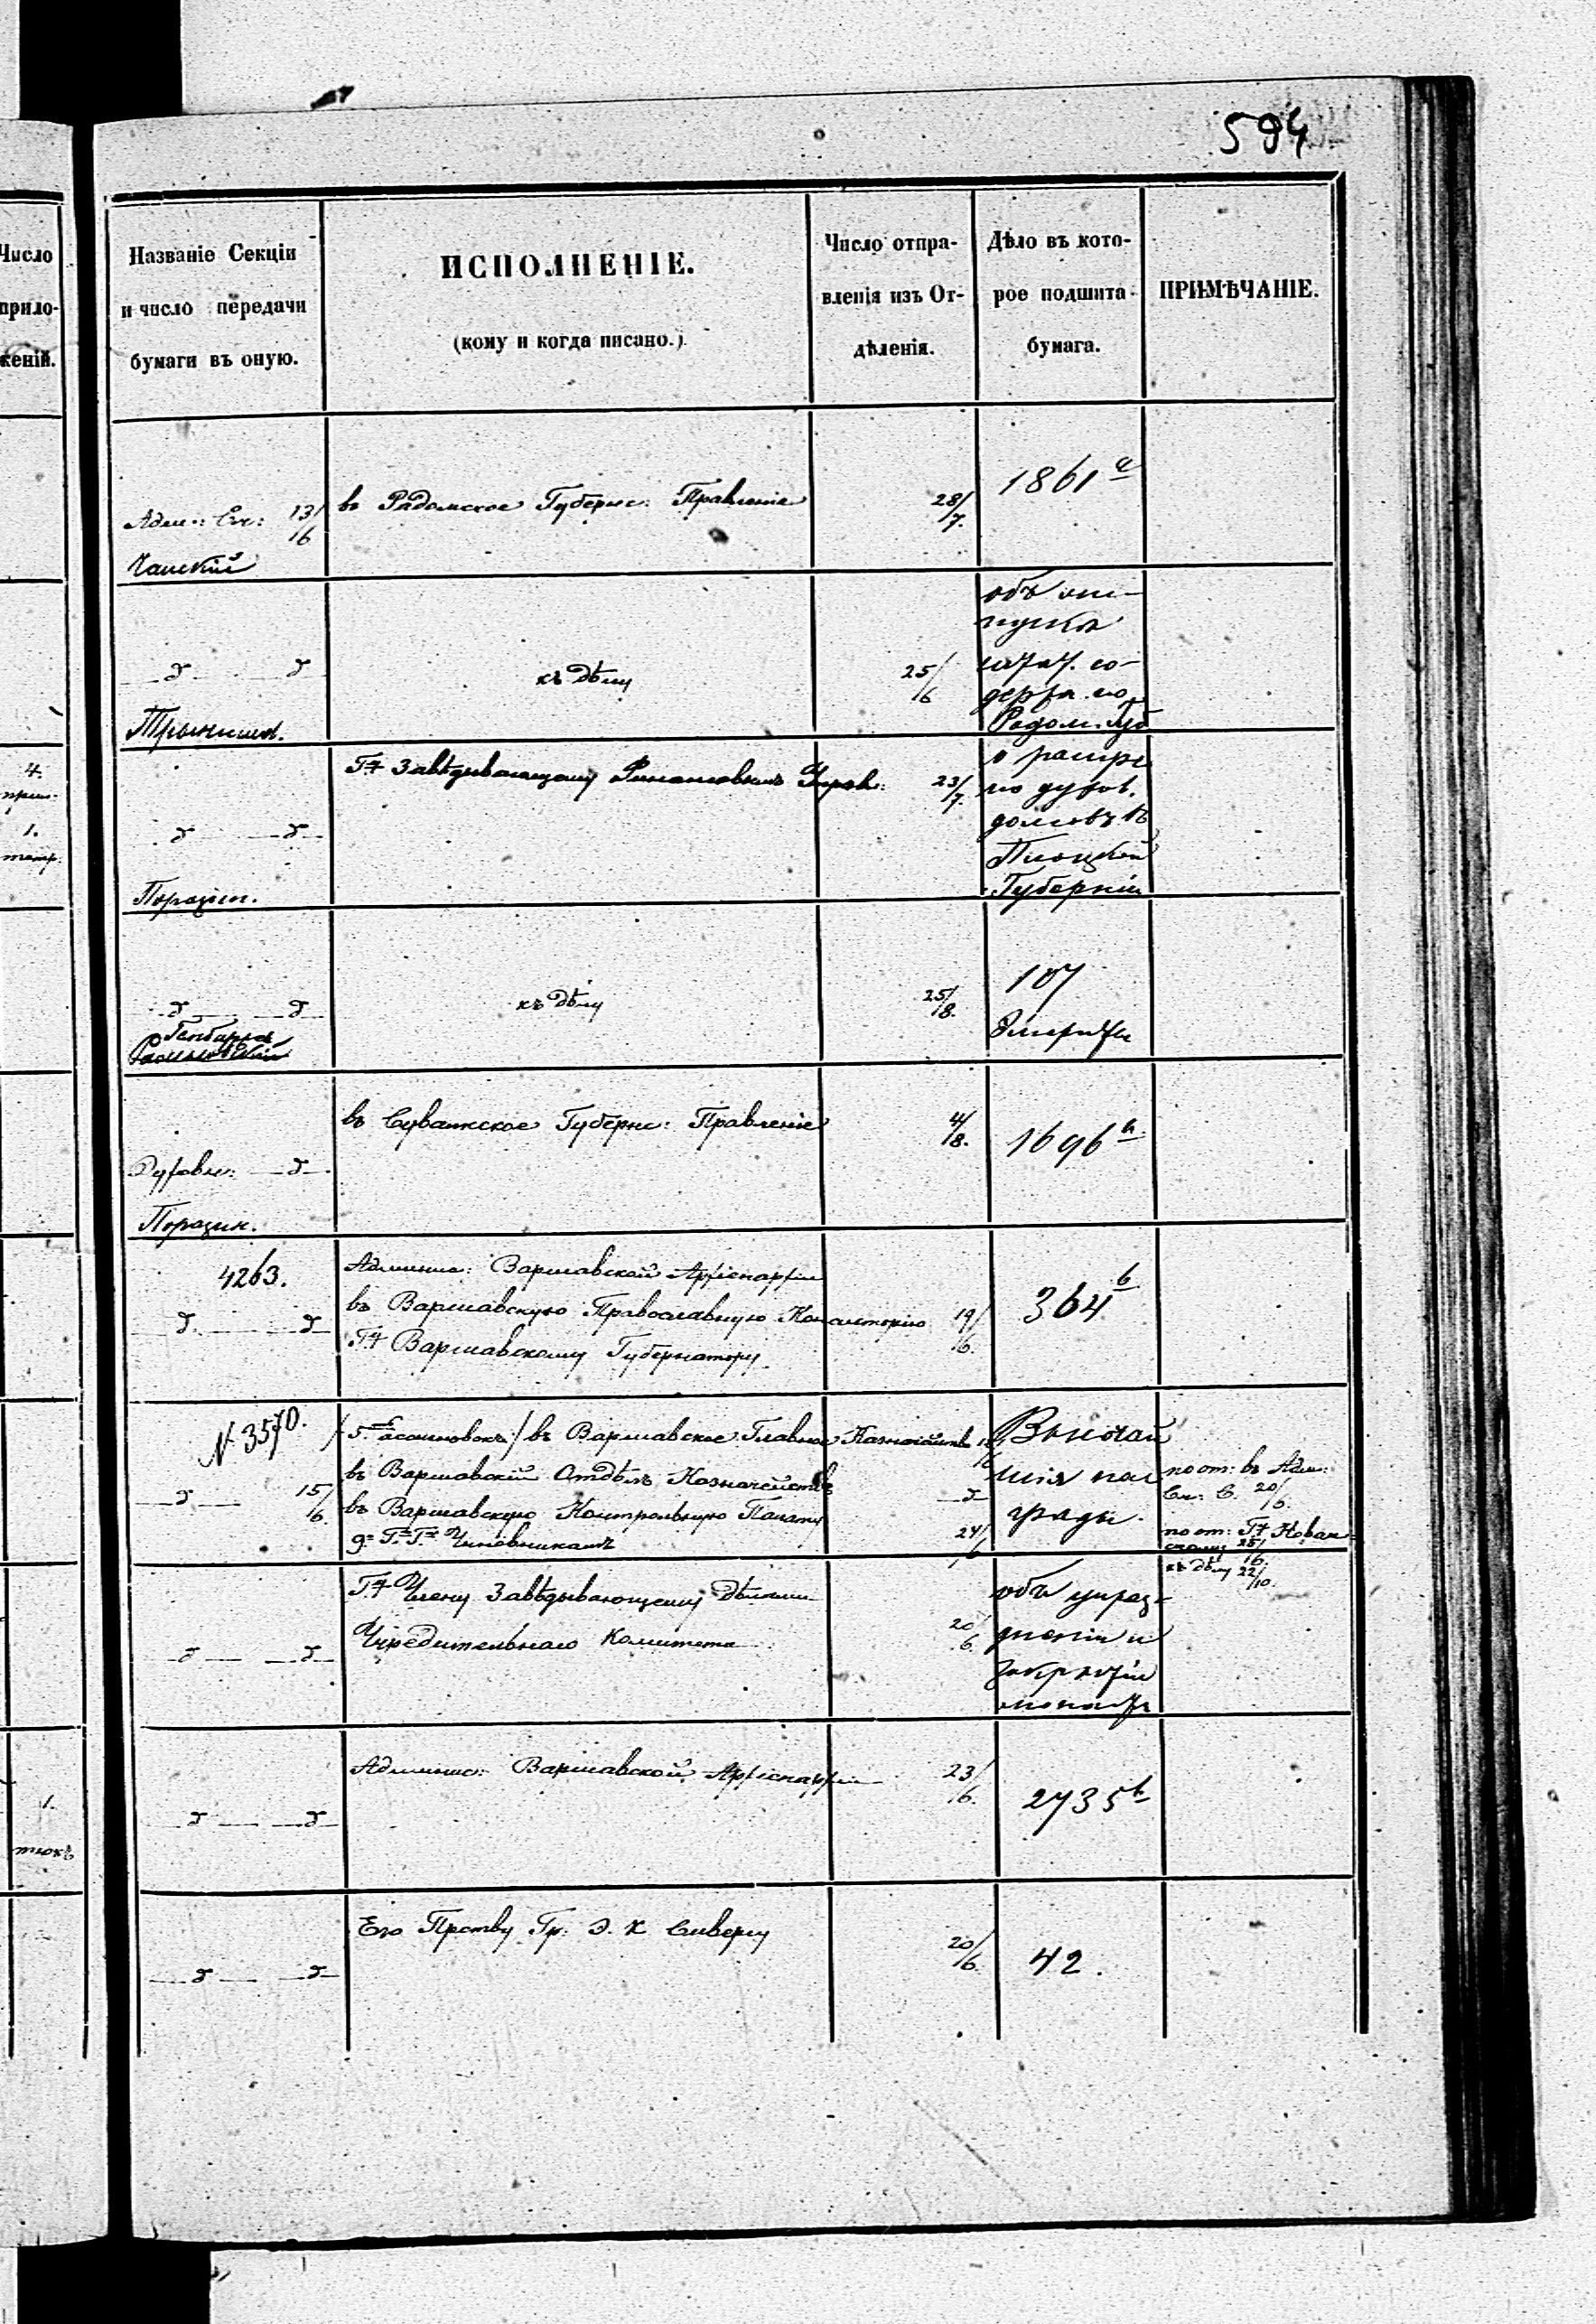 594
Число
прило-
женій.
Названіе Секціи
и число передачи
бумаги въ оную.
ИСПОЛНЕНІЕ.
(кому и когда писано.)
Число отпра-
вленія изъ От-
дѣленія.
Дѣло въ кото-
рое подшита
бумага.
ПРИМѢЧАНІЕ.
Адми: Ск: 13/16
въ Радомское Губернс: Правленіе
28/7.
1861 а
д д
къ дѣлу
25/6
объ
содерж. по
Радом. Губ
4.
1.
д д
Порацин.
Гну Завѣдывающему Финансовымъ Управ:
23/7.
о распр
по духов.
домовъ въ
Плоцкой
Губерніи
д д
къ дѣлу
25/8.
107
Эмериты
Духовн: д
Порацин.
въ Сувалкское Губернс: Правленіе
4/8.
1696 а
4263.
д д
Админис: Варшавской Архіепархіи
въ Варшавскую Православную Консисторію
Гну Варшавскому Губернатору
19/6.
364 в
N 3570.
д 15/6.
/5. ассигновокъ/ въ Варшавское Главное Казначейств
въ Варшавскій Отдѣлъ Казначейства
въ Варшавскую Контрольную Палату
9 Г. Г. Чиновникамъ
д
24/6
Высочай
шія наг
рады.
по от: въ Адм:
Ск: С. 20/6.
по от: Гну Кован
скому 25/16.
къ дѣлу 22/10.
д д
Гну Члену Завѣдывающему Дѣлами
Учредительнаго Комитета
20/6.
объ упраз-
дненіи и
закрытіи
монаст
1.
д д
Админис: Варшавской Архіепархіи
23/6.
2735 в
д д
Его Прству Гр. Э. К Сиверсу
20/6.
42.